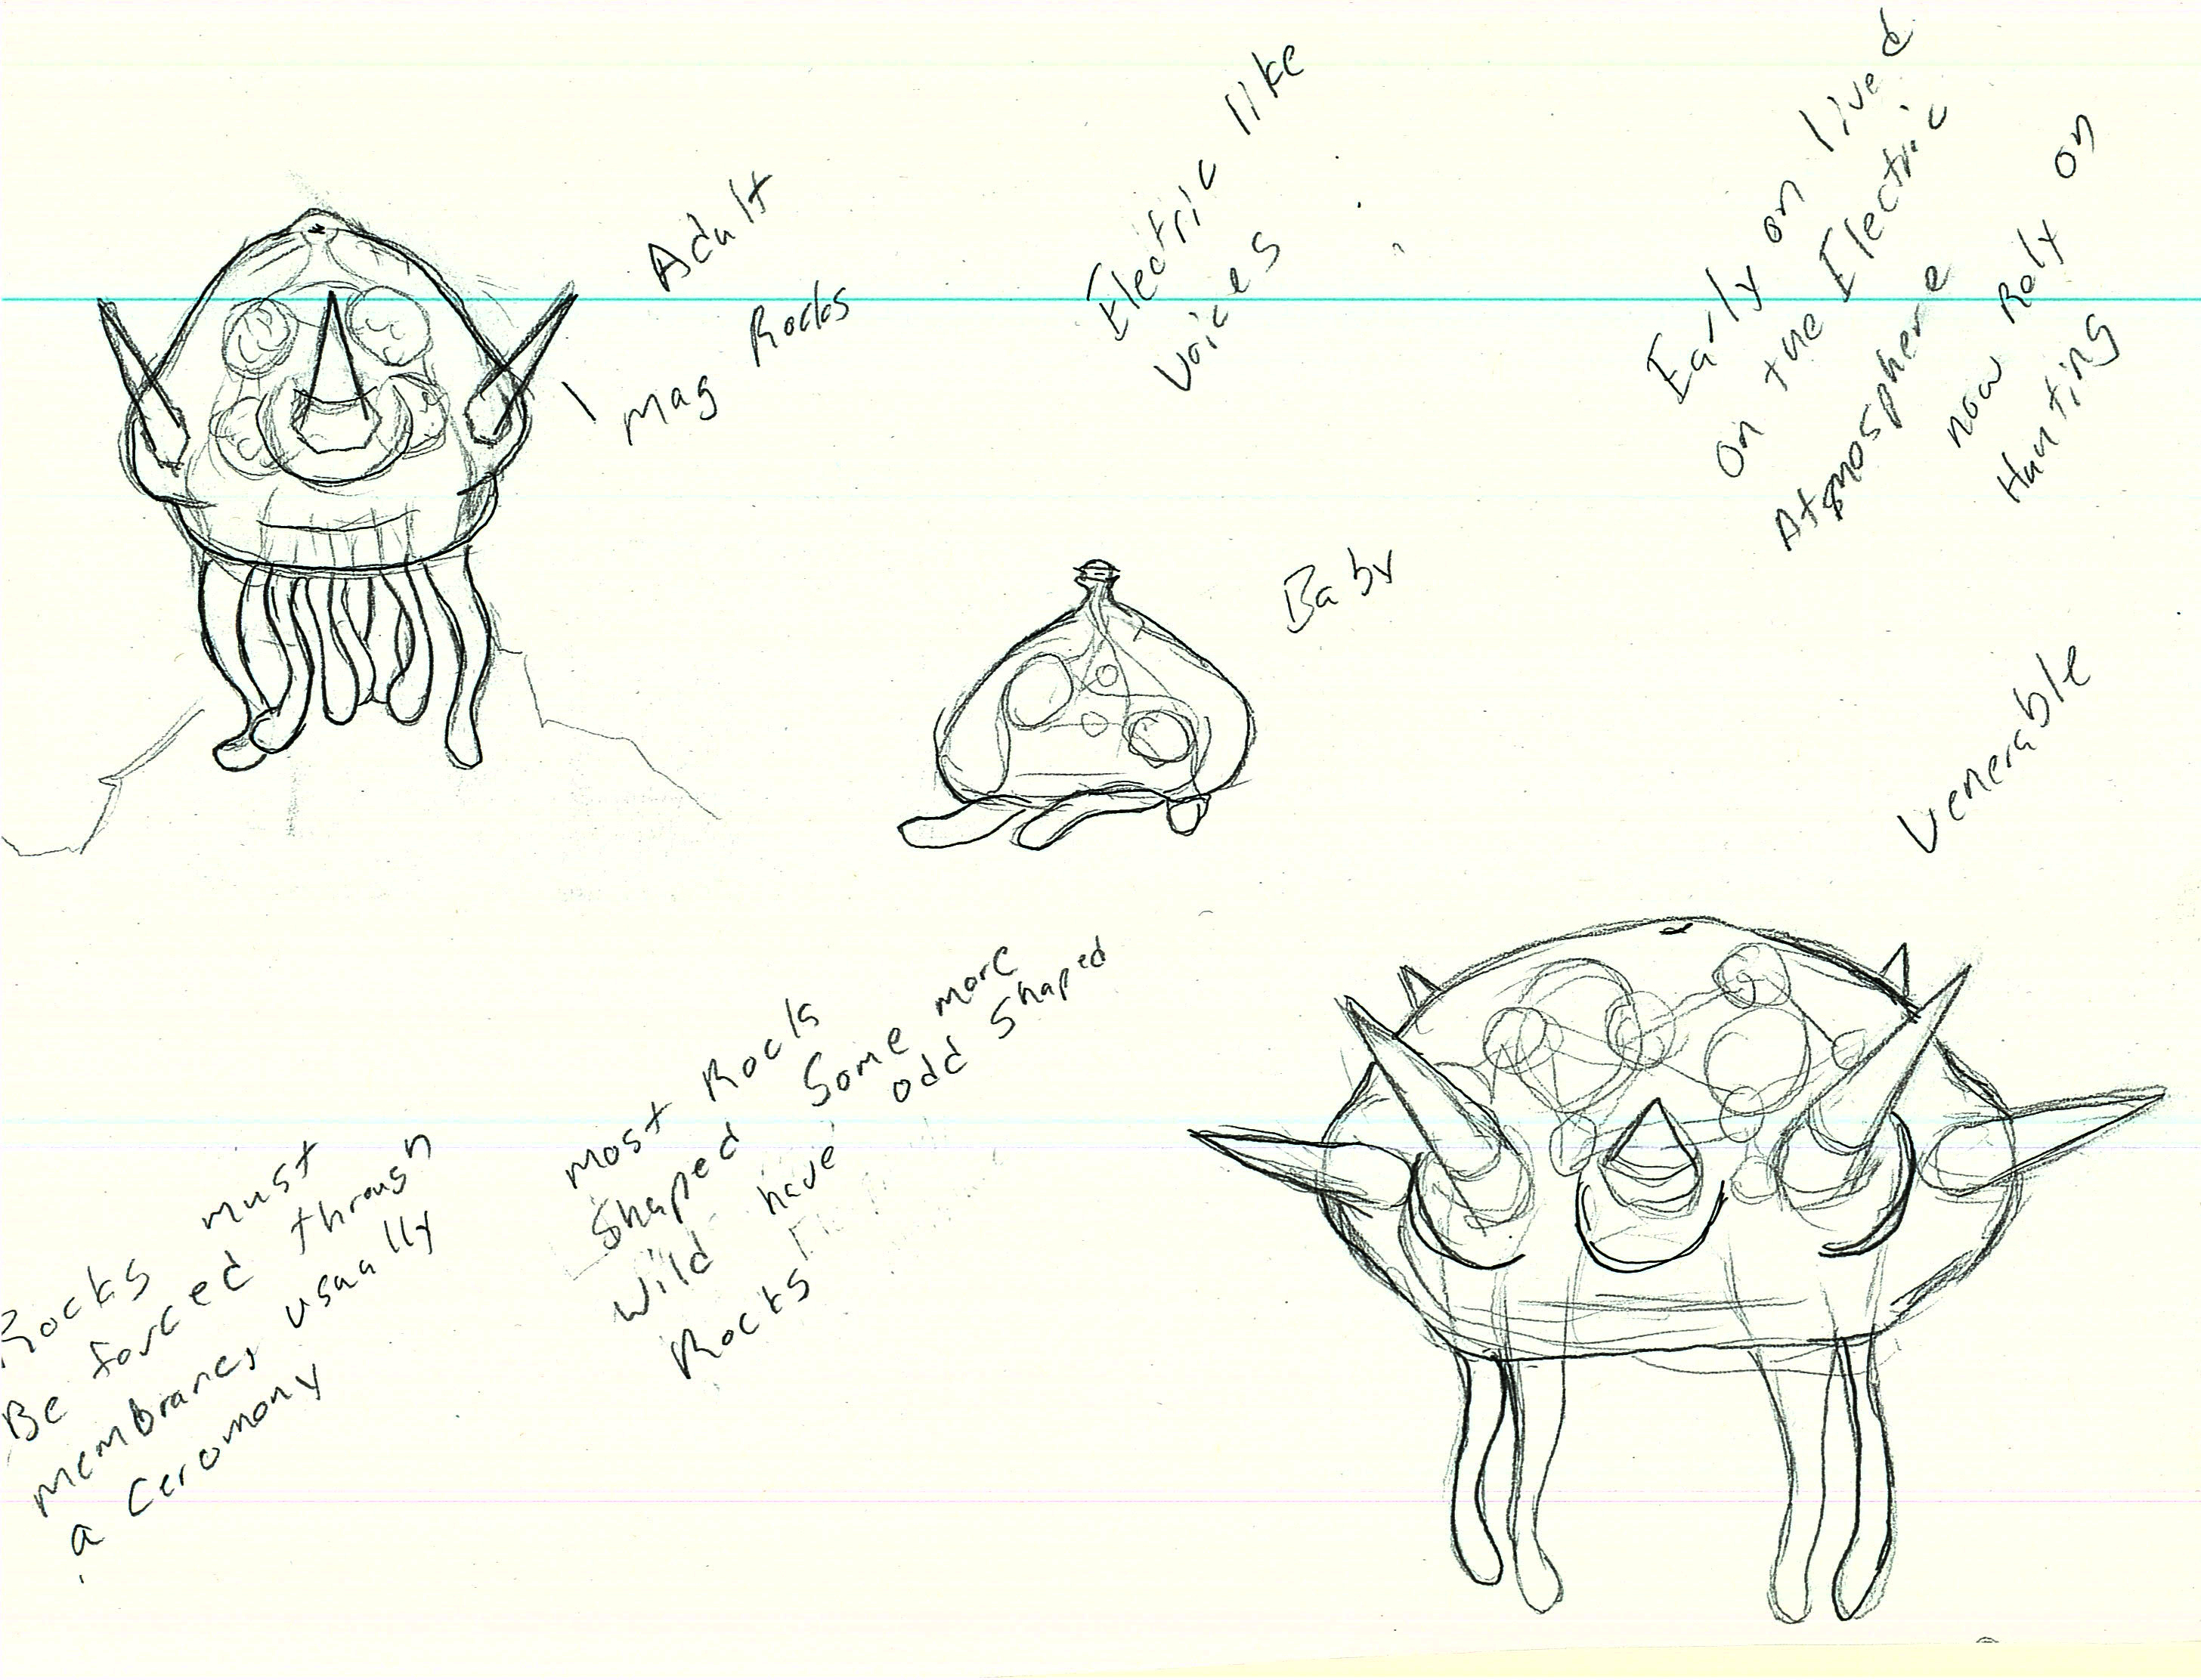 Adult
mag Rocks
Electric like
voices
Early on lived
on the Electric
Atmosphere
now Roly on
Hunting
Baby
Venerable
Rocks must
Be forced through
membrane, usually
a Ceromony
most Rocks
Shaped Some more
Wild have odd Shaped
Rocks